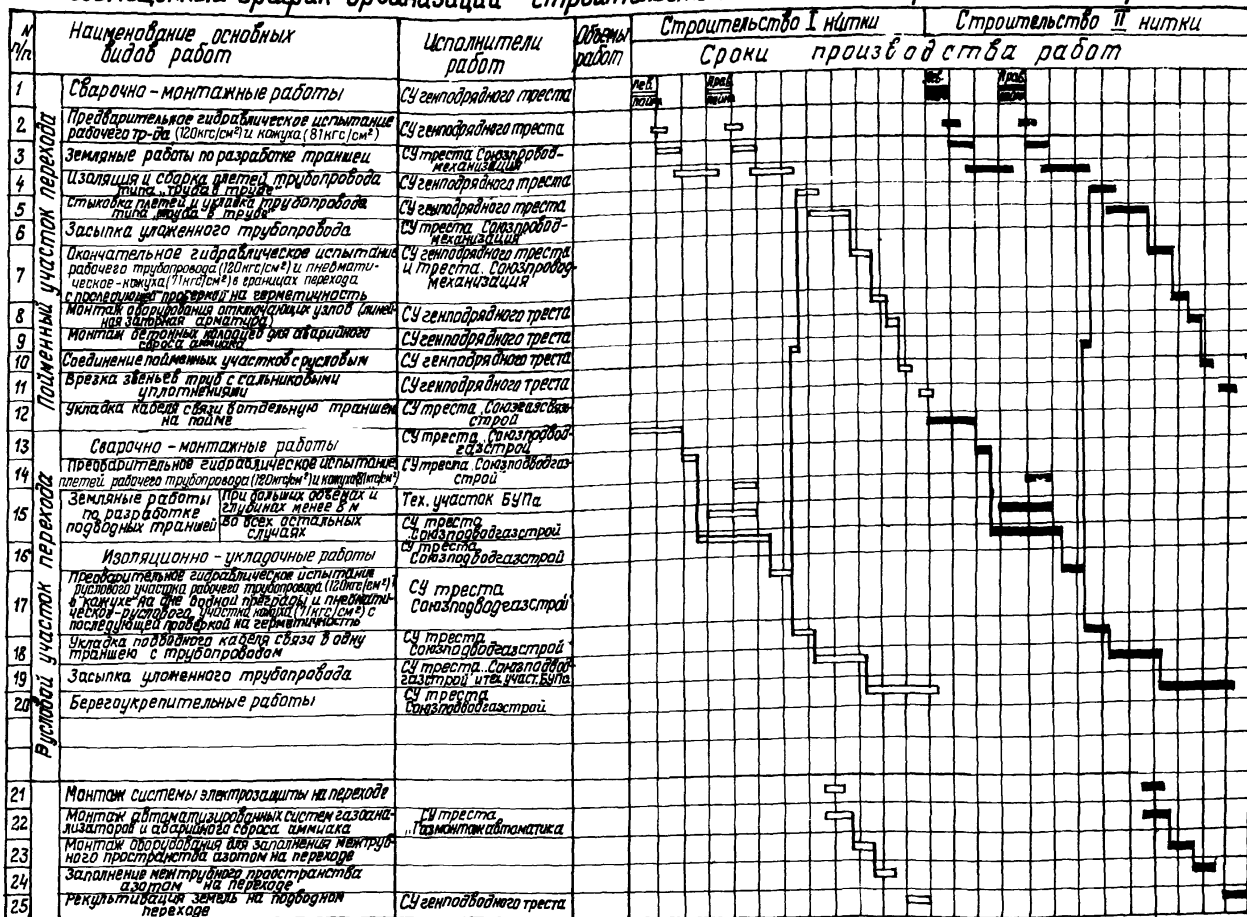 график организации
N п/п
Наименование основных видов работ
Исполнители работ
Объемы работ
Строительство I нитки
Строительство II нитки
Сроки производства работ
Пойменный участок перехода
Лев. пойма
Прав. пойма
Лев. пойма
Прав. пойма
1 Сварочно-монтажные работы
СУ генподрядного треста
2 Предварительное гидравлическое испытание
рабочего тр-да (120кгс/см²) и кожуха (81кгс/см²)
СУ генподрядного треста
3 Земляные работы по разработке траншеи
СУ треста Союзпровод-
механизация
4 Изоляция и сборка плетей трубопровода
типа „труба в трубе"
СУ генподрядного треста
5 Стыковка плетей и укладка трубопровода
типа „труба в трубе"
СУ генподрядного треста
6 Засыпка уложенного трубопровода
СУ треста Союзпровод-
механизация
7 Окончательное гидравлическое испытание
рабочего трубопровода (120кгс/см²) и пневмати-
ческое-кожуха (71кгс/см²) в границах перехода
с последующей проверкой на герметичность
СУ генподрядного треста
и треста Союзпровод-
механизация
8 Монтаж оборудования отключающих узлов (линей-
ная запорная арматура)
СУ генподрядного треста
9 Монтаж бетонных колодцев для аварийного
сброса аммиака
СУ генподрядного треста
10 Соединение пойменных участков с русловым
СУ генподрядного треста
11 Врезка звеньев труб с сальниковыми
уплотнениями
СУ генподрядного треста
12 Укладка кабеля связи в отдельную траншею
на пойме
СУ треста „Союзгазсвязь-
строй
Русловой участок перехода
13 Сварочно-монтажные работы
СУ треста „Союзподвод-
газстрой
14 Предварительное гидравлическое испытание
плетей рабочего трубопровода (120кгс/см²) и кожуха (81кгс/см²)
СУ треста „Союзподводгаз-
строй
15 Земляные работы
по разработке
подводных траншей
При больших объемах и
глубинах менее 8 м
Тех. участок БУПа
во всех остальных
случаях
СУ треста
„Союзподводгазстрой
16 Изоляционно-укладочные работы
СУ треста
Союзподводгазстрой
17 Предварительное гидравлическое испытание
руслового участка рабочего трубопровода (120кгс/см²)
в кожухе на дне водной преграды и пневмати-
ческое-руслового участка кожуха (71кгс/см²) с
последующей проверкой на герметичность
СУ треста
Союзподводгазстрой
18 Укладка подводного кабеля связи в одну
траншею с трубопроводом
СУ треста
Союзподводгазстрой
19 Засыпка уложенного трубопровода
СУ треста „Союзподвод-
газстрой и тех. участ. БУПа
20 Берегоукрепительные работы
СУ треста
Союзподводгазстрой
21 Монтаж системы электрозащиты на переходе
22 Монтаж автоматизированных систем газоана-
лизаторов и аварийного сброса аммиака
СУ треста
„Газмонтажавтоматика
23 Монтаж оборудования для заполнения межтруб-
ного пространства азотом на переходе
24 Заполнение межтрубного пространства
азотом на переходе
25 Рекультивация земель на подводном
переходе
СУ генподводного треста